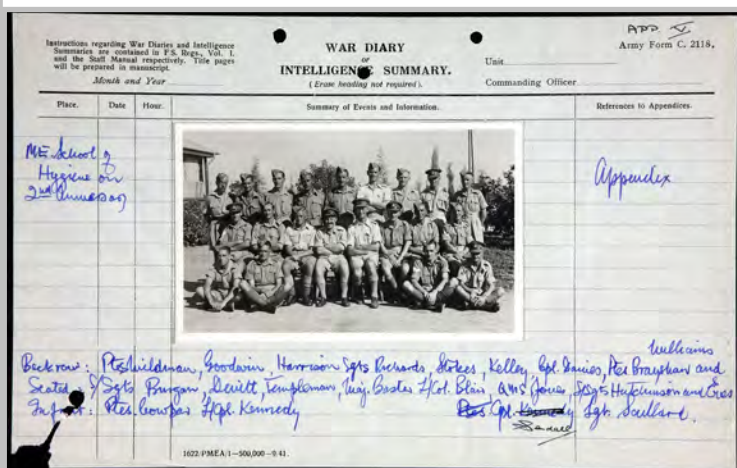 APP. V
Army Form C. 2118.
Instructions regarding War Diaries and Intelligence
Summaries are contained in F.S. Regs., Vol. I.
and the Staff Manual respectively. Title pages
will be prepared in manuscript.
Month and Year
WAR DIARY
or
INTELLIGENCE SUMMARY.
(Erase heading not required).
Unit
Commanding Officer
Place.
Date
Hour.
Summary of Events and Information.
References to Appendices.
ME School of
Hygiene on
2nd
Appendix
Williams
Back row: Ptes Wildman, Goodwin, Harrison Sgts Richards, Stokes, Kelley, Cpl. Davies, Ptes Brayshaw and
Seated: S/Sgts Burgan, Templeman, Maj. Lt/Col. Blair, QMS Jones, S/Sgts Hutchinson and
In front: Ptes. Cowper L/Cpl. Kennedy Cpl. Kennedy Sgt.
1622/PMEA/1-500,000-9/41.